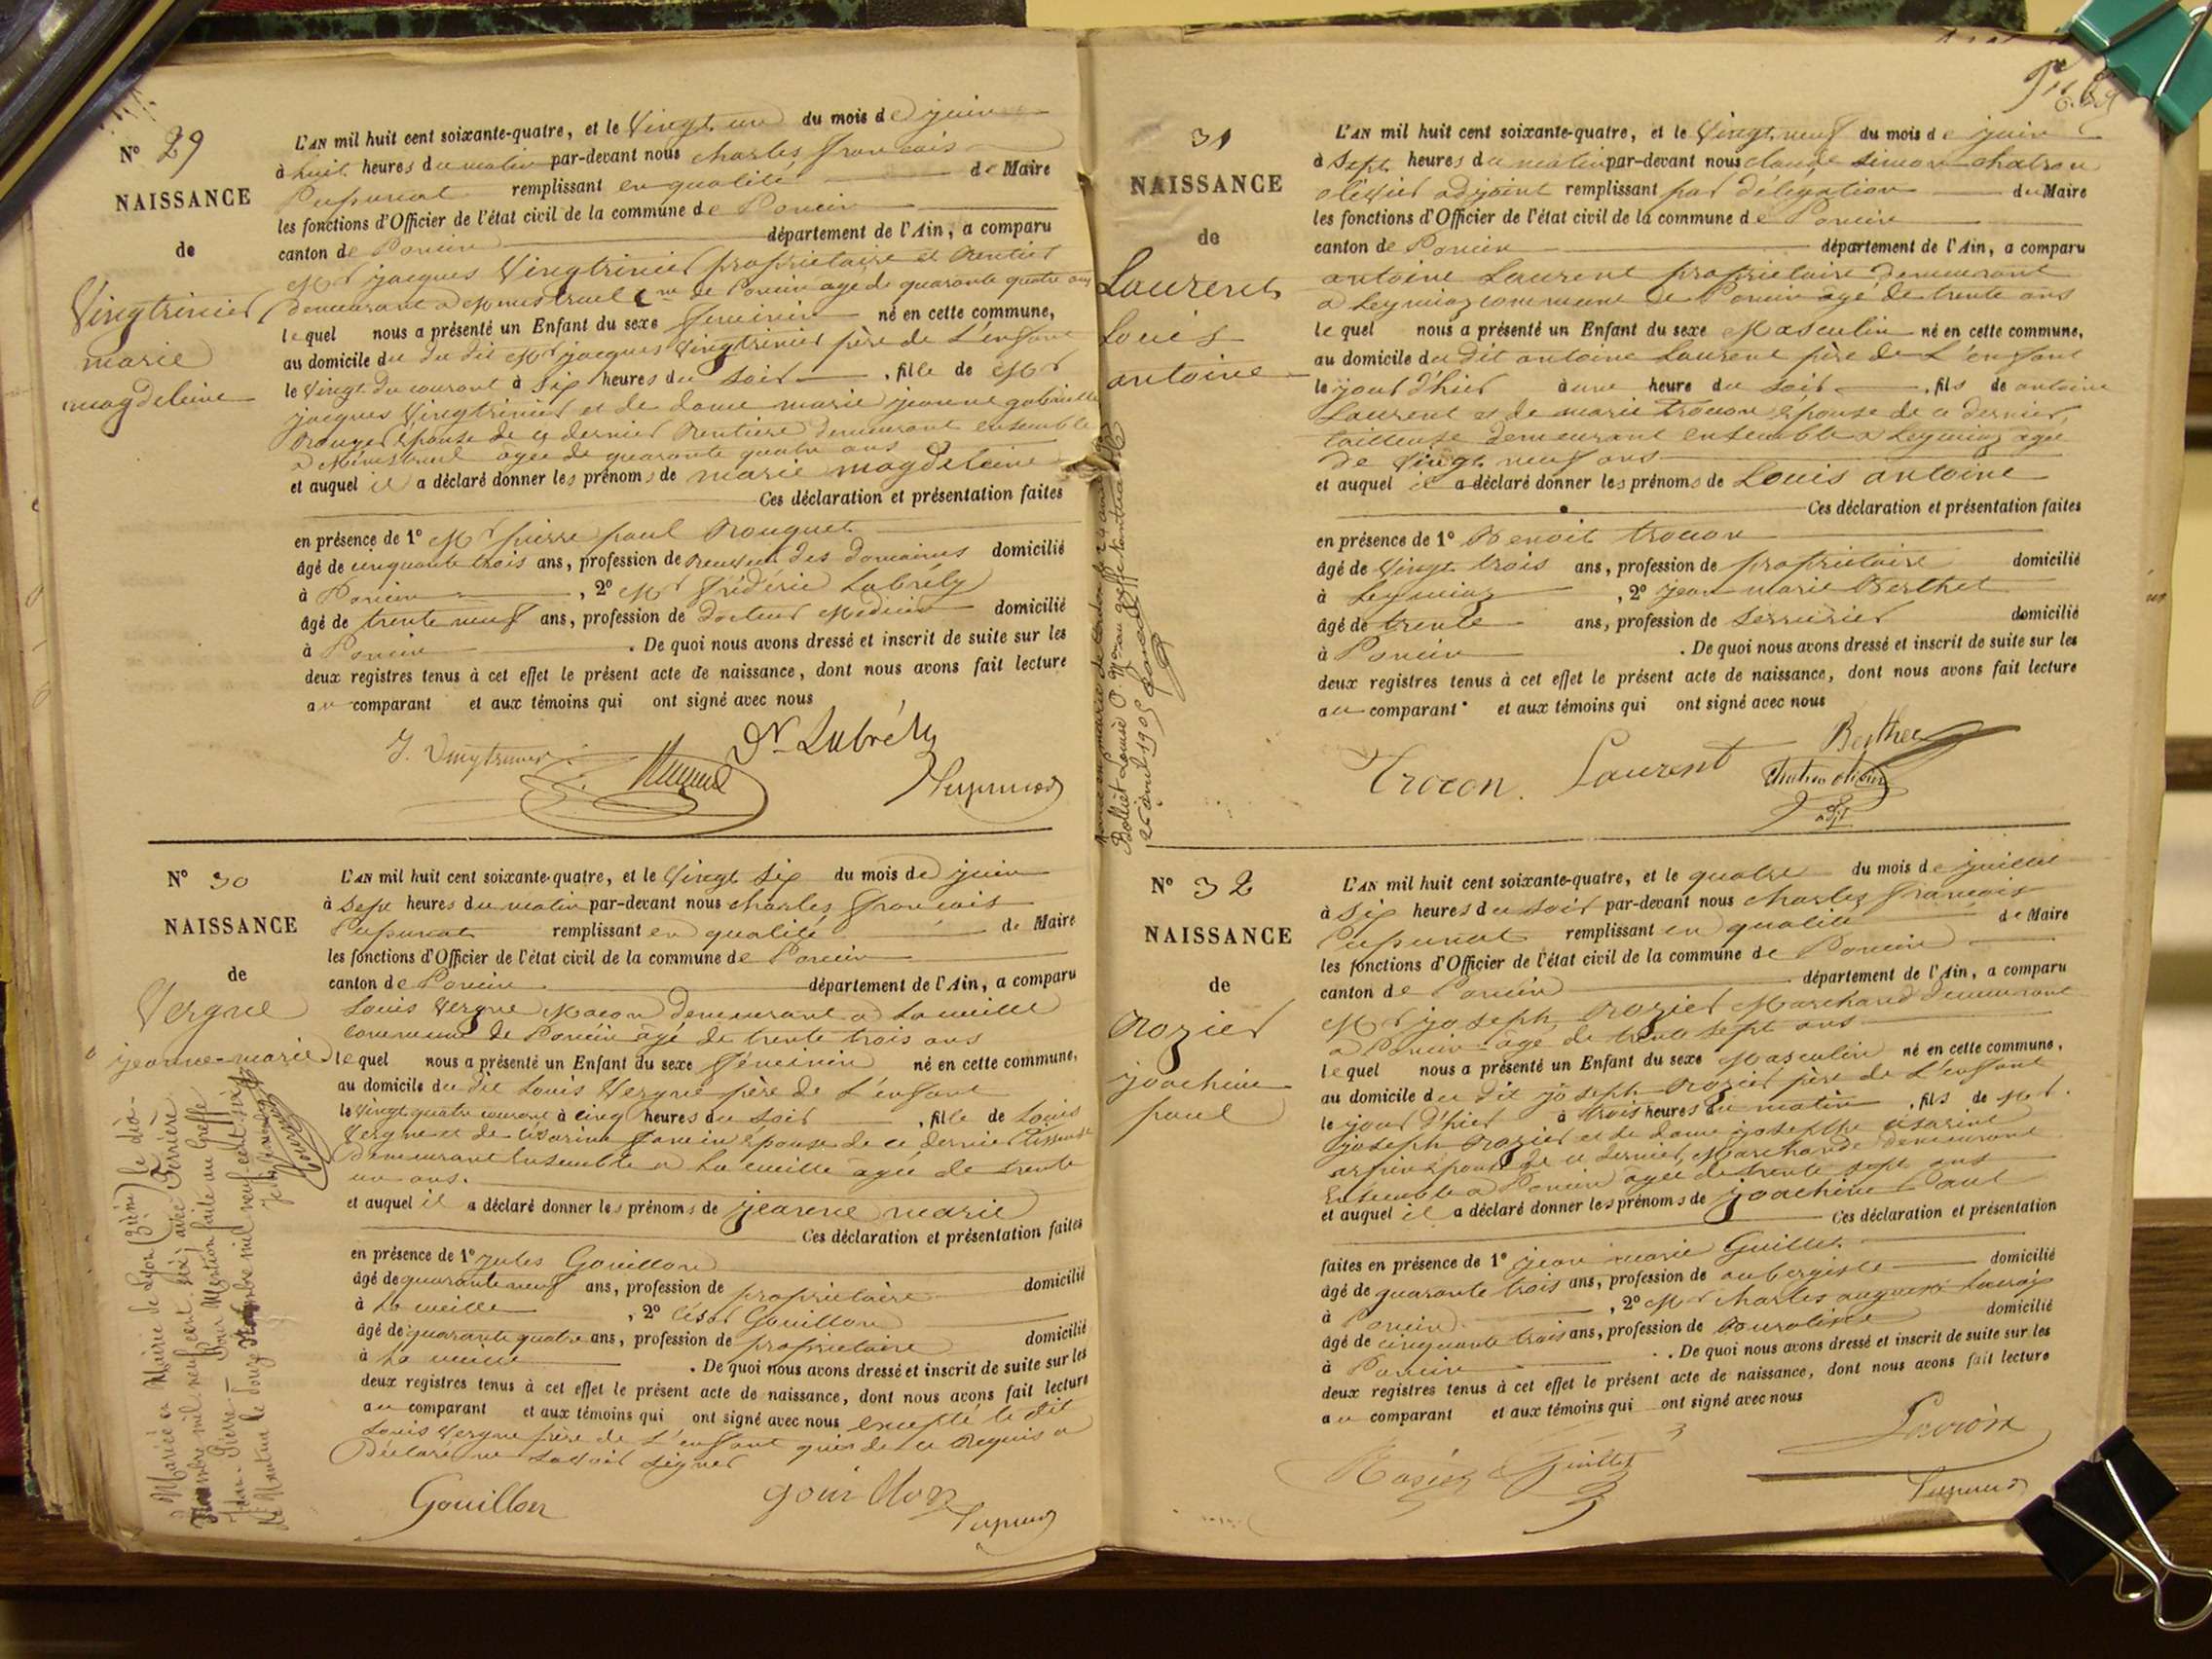 N° 29
NAISSANCE
de
Vingtrinier
marie
magdeleine
L'AN mil huit cent soixante-quatre, et le Vingt un du mois de juin
à huit heures du matin par-devant nous charles francois
Pupunat remplissant en qualité de Maire
les fonctions d'Officier de l'état civil de la commune de Poncin
canton de Poncin département de l'Ain, a comparu
Mr jacques Vingtrinier propriétaire et Rentier
demeurant a Menestruel Cne de Poncin agé de quarante quatre ans
lequel nous a présenté un Enfant du sexe féminin né en cette commune,
au domicile du du dit Mr jacques Vingtrinier père de L'enfant
le Vingt du courant à Six heures du Soir , fille de Mr
jacques Vingtrinier et de dame marie jeanne gabrielle
épouse de ce dernier Rentiere demeurant ensemble
a Ménestruel agée de quarante quatre ans
et auquel il a déclaré donner les prénoms de marie magdeleine
Ces déclaration et présentation faites
en présence de 1° Mr pierre paul Rouguet
âgé de cinquante trois ans, profession de Receveur des domaines domicilié
à Poncin , 2° Mr frédéric Lubrély
âgé de trente neuf ans, profession de docteur Medicin domicilié
à Poncin . De quoi nous avons dressé et inscrit de suite sur les
deux registres tenus à cet effet le présent acte de naissance, dont nous avons fait lecture
au comparant et aux témoins qui ont signé avec nous
J. Vingtrinier
Dr Lubrély
Pupunat
N° 30
NAISSANCE
de
Vergne
jeanne-marie
L'AN mil huit cent soixante-quatre, et le Vingt Six du mois de juin
à Sept heures du matin par-devant nous charles francois
Pupunat remplissant en qualité de Maire
les fonctions d'Officier de l'état civil de la commune de Poncin
canton de Poncin département de l'Ain, a comparu
Louis Vergne Macon demeurant a La cueille
commune de Poncin âgé de trente trois ans
lequel nous a présenté un Enfant du sexe féminin né en cette commune,
au domicile du dit Louis Vergne père de L'enfant
le Vingt quatre courant à cinq heures du Soir , fille de Louis
Vergne et de épouse de ce dernier
demeurant Ensemble a La cueille agée de trente
un ans.
et auquel il a déclaré donner les prénoms de jeanne marie
Ces déclaration et présentation faites
en présence de 1° jules Gouillon
âgé de quarante neuf ans, profession de propriétaire domicilié
à La cueille , 2° César Gouillon
âgé de quarante quatre ans, profession de propriétaire domicilié
à La cueille . De quoi nous avons dressé et inscrit de suite sur les
deux registres tenus à cet effet le présent acte de naissance, dont nous avons fait lecture
au comparant et aux témoins qui ont signé avec nous excepté le dit
Louis Vergne père de L'enfant qui de ce Requis a
Déclaré ne Savoir signer
Gouillon
gouillon
Pupunat
Mariée en Mairie de Lyon (3ème) le dix-
Novembre mil neuf cent six avec Ferrière
Jean-Pierre - Pour Mention faite au Greffe
de Nantua le douze Novembre mil neuf cent six
31
NAISSANCE
de
Laurent
Louis
antoine
L'AN mil huit cent soixante-quatre, et le Vingt neuf du mois de juin
à Sept heures du matin par-devant nous claude simon chatron
olivier adjoint remplissant par délégation du Maire
les fonctions d'Officier de l'état civil de la commune de Poncin
canton de Poncin département de l'Ain, a comparu
antoine Laurent propriétaire demeurant
a Leymiaz commune de Poncin agé de trente ans
lequel nous a présenté un Enfant du sexe Masculin né en cette commune,
au domicile du dit antoine Laurent père de L'enfant
le jour d'hier à une heure du soir , fils de antoine
Laurent et de marie trocon épouse de ce dernier
tailleuse demeurant ensemble a Leymiaz agée
de Vingt neuf ans
et auquel il a déclaré donner les prénoms de Louis antoine
Ces déclaration et présentation faites
en présence de 1° Benoit trocon
âgé de Vingt trois ans, profession de propriétaire domicilié
à Leymiaz , 2° jean marie Berthet
âgé de trente ans, profession de Serrurier domicilié
à Poncin . De quoi nous avons dressé et inscrit de suite sur les
deux registres tenus à cet effet le présent acte de naissance, dont nous avons fait lecture
au comparant et aux témoins qui ont signé avec nous
Trocon.
Laurent
Berthet
Chatron olivier
adjt
N° 32
NAISSANCE
de
Rozier
joachim
paul
L'AN mil huit cent soixante-quatre, et le quatre du mois de juillet
à Six heures du soir par-devant nous charles francois
Pupunat remplissant en qualité de Maire
les fonctions d'Officier de l'état civil de la commune de Poncin
canton de Poncin département de l'Ain, a comparu
Mr joseph Rozier Marchand demeurant
a Poncin agé de trente sept ans
lequel nous a présenté un Enfant du sexe Masculin né en cette commune,
au domicile du dit joseph Rozier père de L'enfant
le jour d'hier à trois heures du matin , fils de Mr
joseph Rozier et de dame josephe césarine
épouse de ce dernier, Marchande demeurant
Ensemble a Poncin agée de trente sept ans
et auquel il a déclaré donner les prénoms de joachim Paul
Ces déclaration et présentation
faites en présence de 1° jean marie Guillet
âgé de quarante trois ans, profession de aubergiste domicilié
à Poncin , 2° Mr charles
âgé de cinquante trois ans, profession de domicilié
à Poncin . De quoi nous avons dressé et inscrit de suite sur les
deux registres tenus à cet effet le présent acte de naissance, dont nous avons fait lecture
au comparant et aux témoins qui ont signé avec nous
Rosier
Guillet
Pupunat